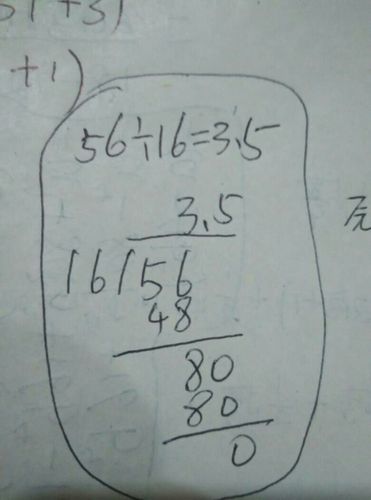 +3)
+1)
56÷16=3.5
3.5
16)56
48
80
80
0
元